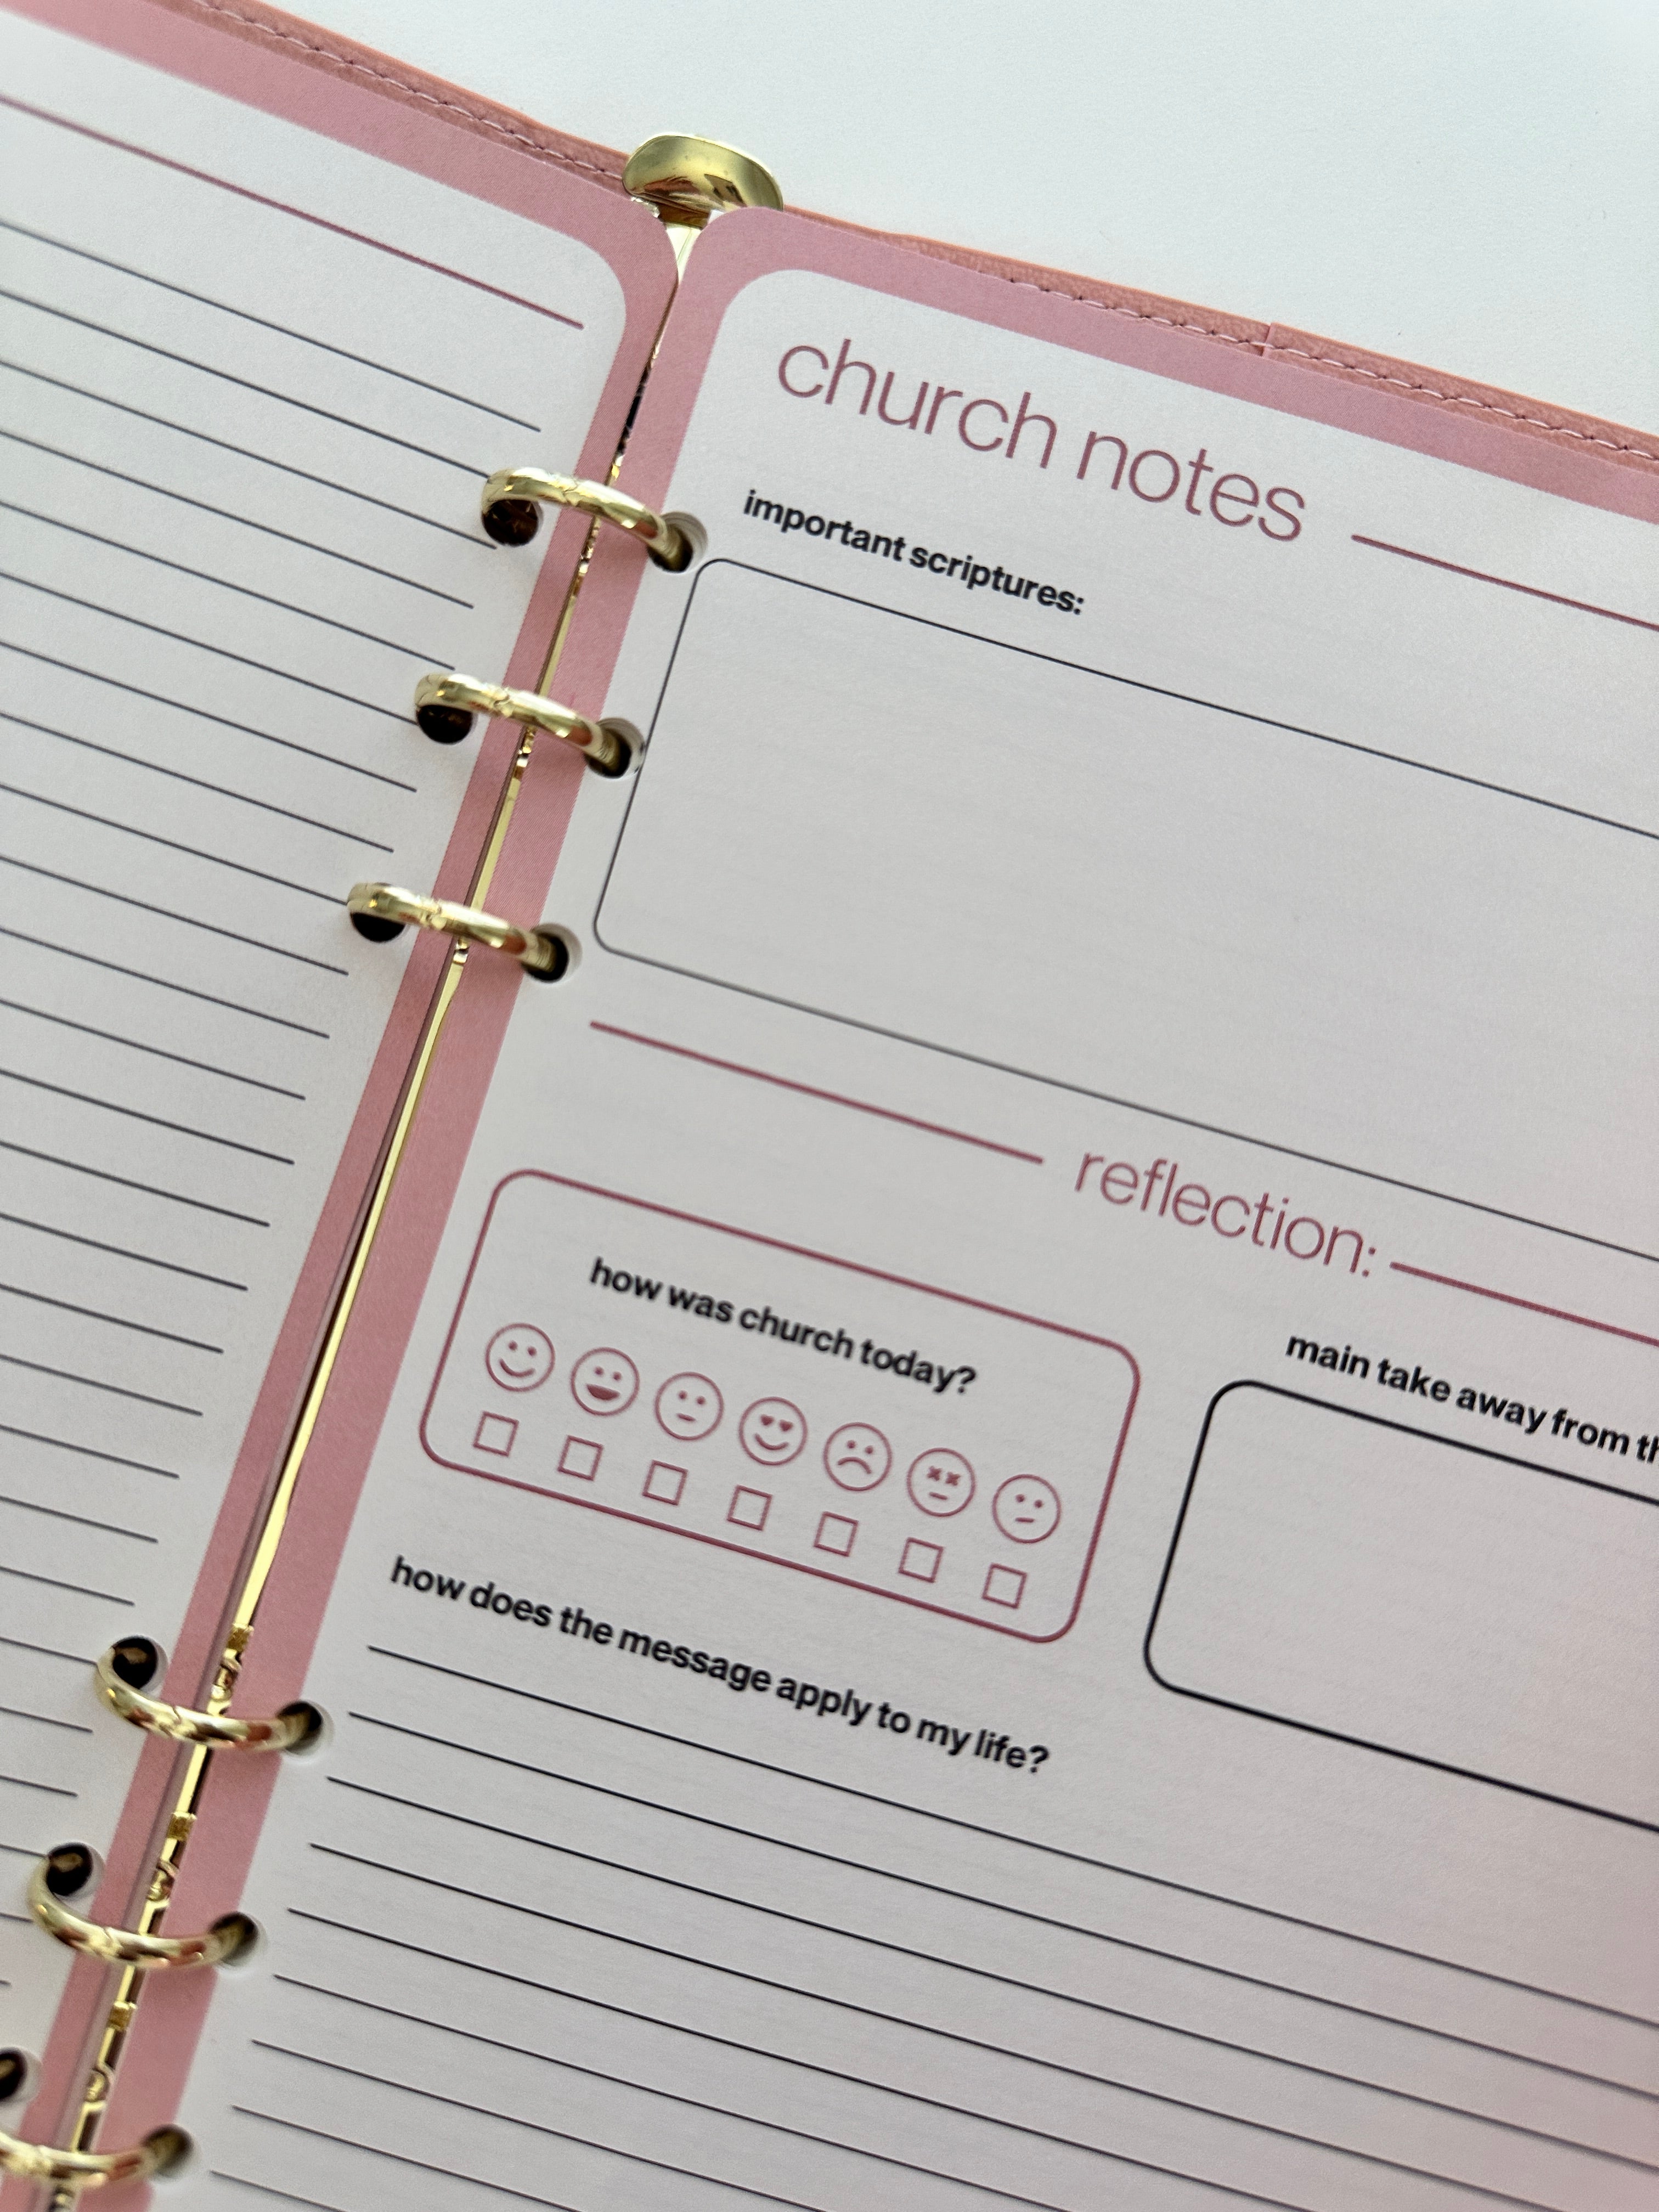 church notes
important scriptures:
reflection:
how was church today?
main take away from
how does the message apply to my life?